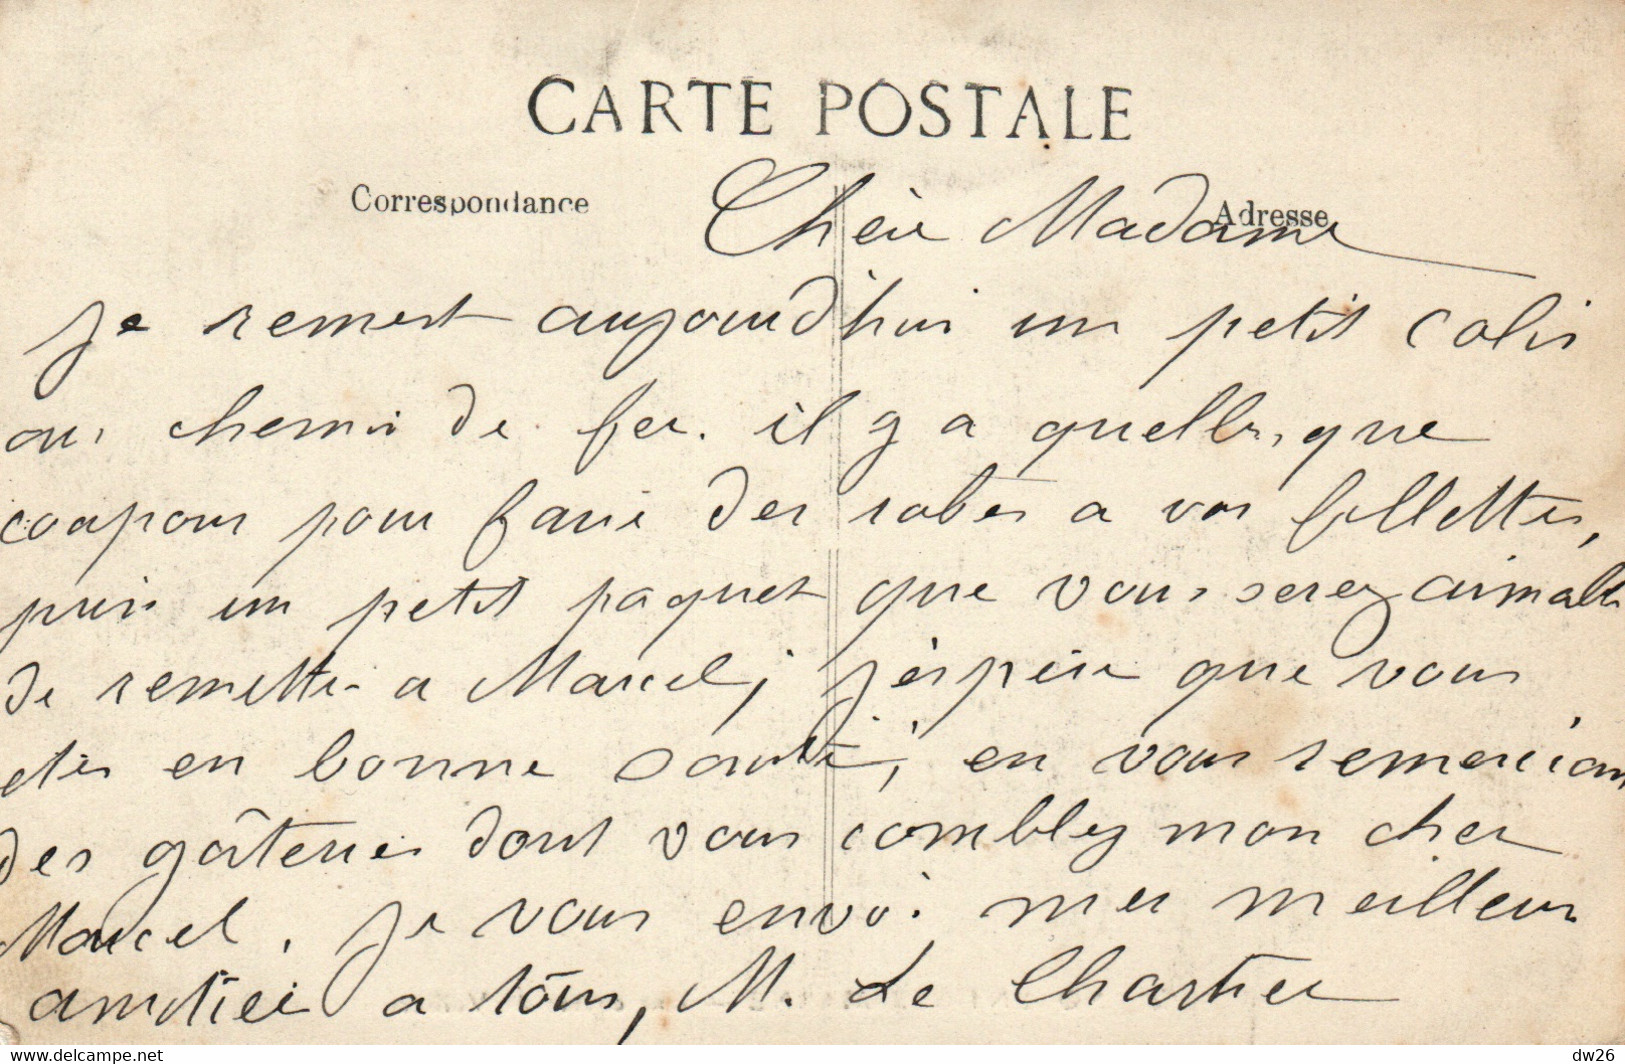 CARTE POSTALE
Correspondance
Adresse
Chère Madame
Je remest aujourd'hui un petit colis
au chemin de fer. il y a quelle, que
coupons pour faire des robes a vos fillettes,
puis un petit paquet que vous serez aimable
de remettre a Marcel; j'èspère que vous
etes en bonne santé; en vous remerciant
des gâteries dont vous comblez mon cher
Marcel. Je vous envoi mes meilleurs
amitiés a tous, M. Le Chartier
www.delcampe.net
dw26